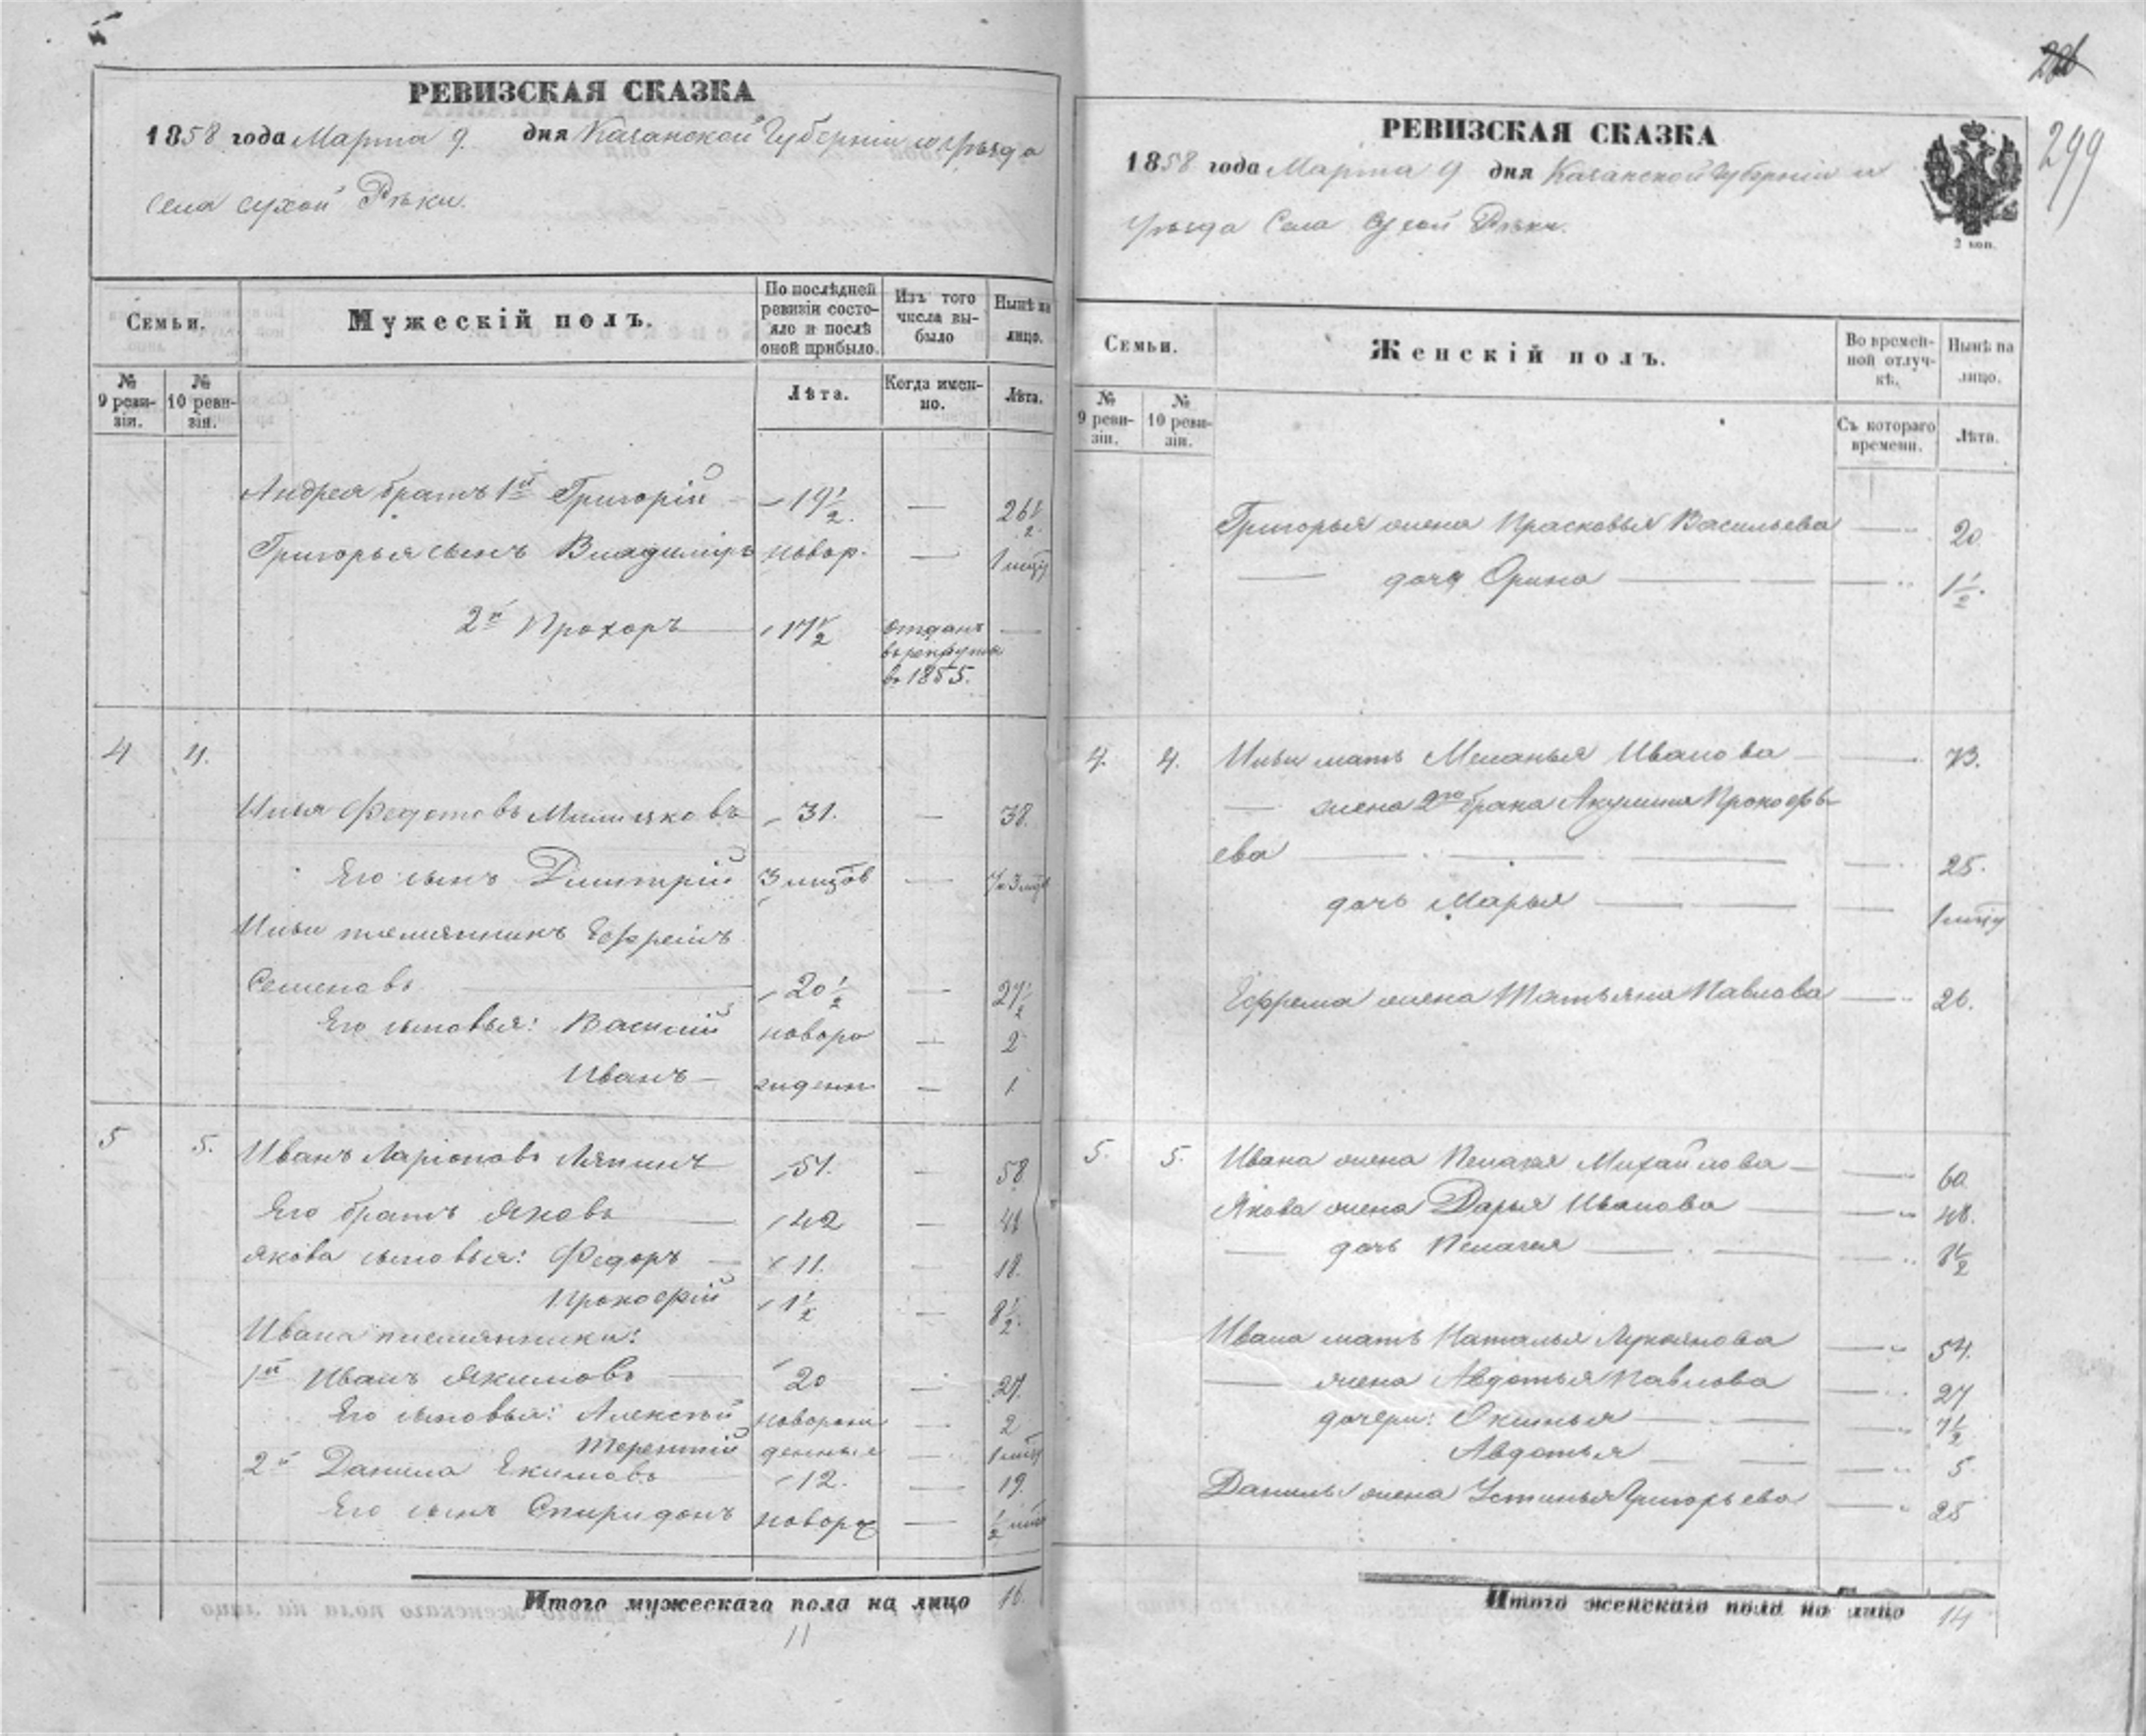 РЕВИЗСКАЯ СКАЗКА
1858 года Марта 9. дня Казанской Губерніи и Уѣзда
села сухой Рѣки.
Семьи.
Мужескій полъ.
По послѣдней ревизіи состояло и послѣ оной прибыло.
Изъ того числа выбыло
Нынѣ на лицо.
№ 9 ревизіи.
№ 10 ревизіи.
Лѣта.
Когда именно.
Лѣта.
Андрея братъ 1й Григорій — 19 1/2. — 26 1/2.
Григорья сынъ Владиміръ новор. —
2й Прохоръ — 17 1/2 отданъ
въ рекруты
въ 1855.
4 4.
Илья Федотовъ 31. — 38.
Его сынъ Димитрій 3 мцов —
Ильи племянникъ Ефремъ
Семеновъ — 20 1/2 — 27 1/2
Его сыновья: Василій новоро — 2
Иванъ — жденн — 1.
5 5. Иванъ Ларіоновъ Ляпинъ 51. — 58
Его братъ Яковъ — 42 —
Якова сыновья: Федоръ — 11. — 18.
Прокофій 1 1/2 — 8 1/2.
Ивана племянники:
1й Иванъ Якимовъ — 20 — 27.
Его сыновья: Алексѣй новорож — 2
Терентій денные —
2й Данила Екимовъ 12. — 19.
Его сынъ Спиридонъ новорж —
Итого мужескаго пола на лицо 16.
11
299
РЕВИЗСКАЯ СКАЗКА
1858 года Марта 9 дня Казанской Губерніи и
Уѣзда Села Сухой Рѣки.
2 коп.
Семьи.
Женскій полъ.
Во временной отлучкѣ.
Нынѣ на лицо.
№ 9 ревизіи.
№ 10 ревизіи.
Съ котораго времени.
Лѣта.
Григорья жена Прасковья Васильева — 20.
— дочь Орина — 1 1/2.
4. 4. Ильи мать Меланья Иванова — 73.
— жена 2го брака Акулина Прокофь-
ева — 25.
дочь Марья —
Ефрема жена Татьяна Павлова — 26.
5. 5. Ивана жена Пелагея Михайлова — 60
Якова жена Дарья Иванова — 48.
— дочь Пелагея —
Ивана мать Наталья Лукоянова — 54.
— жена Авдотья Павлова — 27
дочери: Окинья — 7 1/2
Авдотья — 5
Данилы жена Устинья Григорьева — 25
Итого женскаго пола на лицо 14